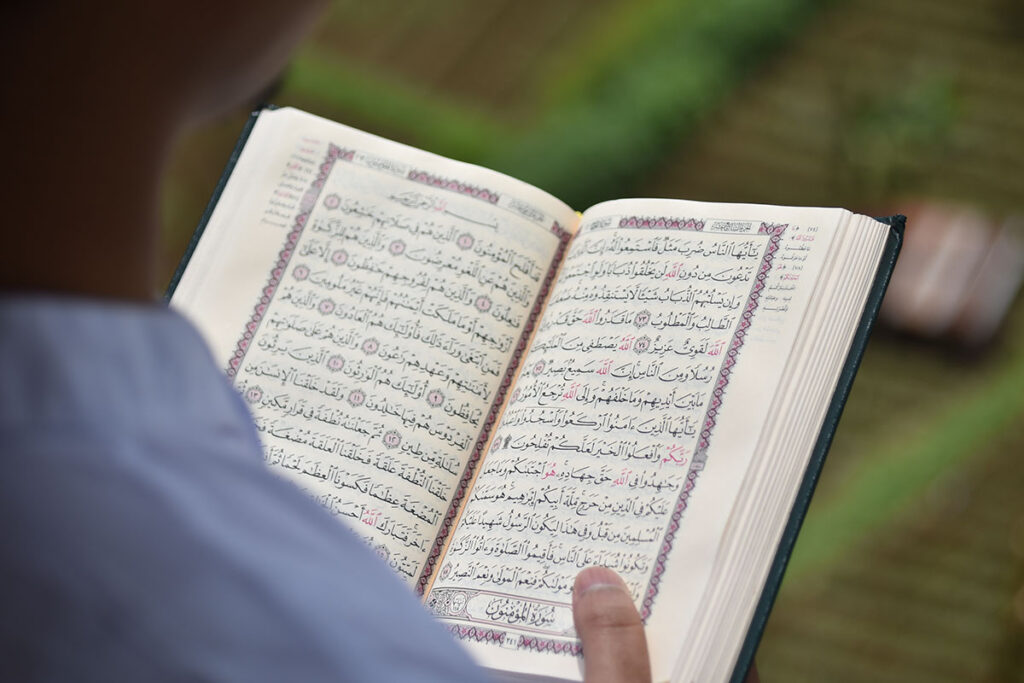 يَٰٓأَيُّهَا ٱلنَّاسُ ضُرِبَ مَثَلٌ فَٱسْتَمِعُوا۟ لَهُۥٓ إِنَّ
تَدْعُونَ مِن دُونِ ٱللَّهِ لَن يَخْلُقُوا۟ ذُبَابًا وَلَوِ ٱجْتَمَعُوا۟
وَإِن يَسْلُبْهُمُ ٱلذُّبَابُ شَيْـًٔا لَّا يَسْتَنقِذُوهُ مِنْهُ
ٱلطَّالِبُ وَٱلْمَطْلُوبُ ٧٣ مَا قَدَرُوا۟ ٱللَّهَ حَقَّ
ٱللَّهَ لَقَوِىٌّ عَزِيزٌ ٧٤ ٱللَّهُ يَصْطَفِى مِنَ
رُسُلًا وَمِنَ ٱلنَّاسِ إِنَّ ٱللَّهَ سَمِيعٌۢ بَصِيرٌ ٧٥
مَا بَيْنَ أَيْدِيهِمْ وَمَا خَلْفَهُمْ وَإِلَى ٱللَّهِ تُرْجَعُ ٱلْأُمُورُ
يَٰٓأَيُّهَا ٱلَّذِينَ ءَامَنُوا۟ ٱرْكَعُوا۟ وَٱسْجُدُوا۟
رَبَّكُمْ وَٱفْعَلُوا۟ ٱلْخَيْرَ لَعَلَّكُمْ تُفْلِحُونَ ۩
وَجَٰهِدُوا۟ فِى ٱللَّهِ حَقَّ جِهَادِهِۦ هُوَ ٱجْتَبَىٰكُمْ وَمَا جَعَلَ
عَلَيْكُمْ فِى ٱلدِّينِ مِنْ حَرَجٍ مِّلَّةَ أَبِيكُمْ إِبْرَٰهِيمَ هُوَ سَمَّىٰكُمُ
ٱلْمُسْلِمِينَ مِن قَبْلُ وَفِى هَٰذَا لِيَكُونَ ٱلرَّسُولُ شَهِيدًا عَلَيْكُمْ
وَتَكُونُوا۟ شُهَدَآءَ عَلَى ٱلنَّاسِ فَأَقِيمُوا۟ ٱلصَّلَوٰةَ وَءَاتُوا۟ ٱلزَّكَوٰةَ
مَوْلَىٰكُمْ فَنِعْمَ ٱلْمَوْلَىٰ وَنِعْمَ ٱلنَّصِيرُ ٧٨
سُورَةُ ٱلْمُؤْمِنُونَ
٣٤١
قَدْ أَفْلَحَ ٱلْمُؤْمِنُونَ ١ ٱلَّذِينَ هُمْ فِى صَلَاتِهِمْ خَٰشِعُونَ ٢
وَٱلَّذِينَ هُمْ عَنِ ٱللَّغْوِ مُعْرِضُونَ ٣ وَٱلَّذِينَ هُمْ لِلزَّكَوٰةِ
فَٰعِلُونَ ٤ وَٱلَّذِينَ هُمْ لِفُرُوجِهِمْ حَٰفِظُونَ ٥ إِلَّا عَلَىٰٓ
أَزْوَٰجِهِمْ أَوْ مَا مَلَكَتْ أَيْمَٰنُهُمْ فَإِنَّهُمْ غَيْرُ مَلُومِينَ ٦
ٱبْتَغَىٰ وَرَآءَ ذَٰلِكَ فَأُو۟لَٰٓئِكَ هُمُ ٱلْعَادُونَ ٧ وَٱلَّذِينَ هُمْ
لِأَمَٰنَٰتِهِمْ وَعَهْدِهِمْ رَٰعُونَ ٨ وَٱلَّذِينَ هُمْ عَلَىٰ صَلَوَٰتِهِمْ
يُحَافِظُونَ ٩ أُو۟لَٰٓئِكَ هُمُ ٱلْوَٰرِثُونَ ١٠ ٱلَّذِينَ يَرِثُونَ
ٱلْفِرْدَوْسَ هُمْ فِيهَا خَٰلِدُونَ ١١ وَلَقَدْ خَلَقْنَا ٱلْإِنسَٰنَ مِن
سُلَٰلَةٍ مِّن طِينٍ ١٢ ثُمَّ جَعَلْنَٰهُ نُطْفَةً فِى قَرَارٍ مَّكِينٍ ١٣
خَلَقْنَا ٱلنُّطْفَةَ عَلَقَةً فَخَلَقْنَا ٱلْعَلَقَةَ مُضْغَةً
ٱلْمُضْغَةَ عِظَٰمًا فَكَسَوْنَا ٱلْعِظَٰمَ لَحْمًا
ءَاخَرَ فَتَبَارَكَ ٱللَّهُ أَحْسَنُ
لَمَيِّتُونَ